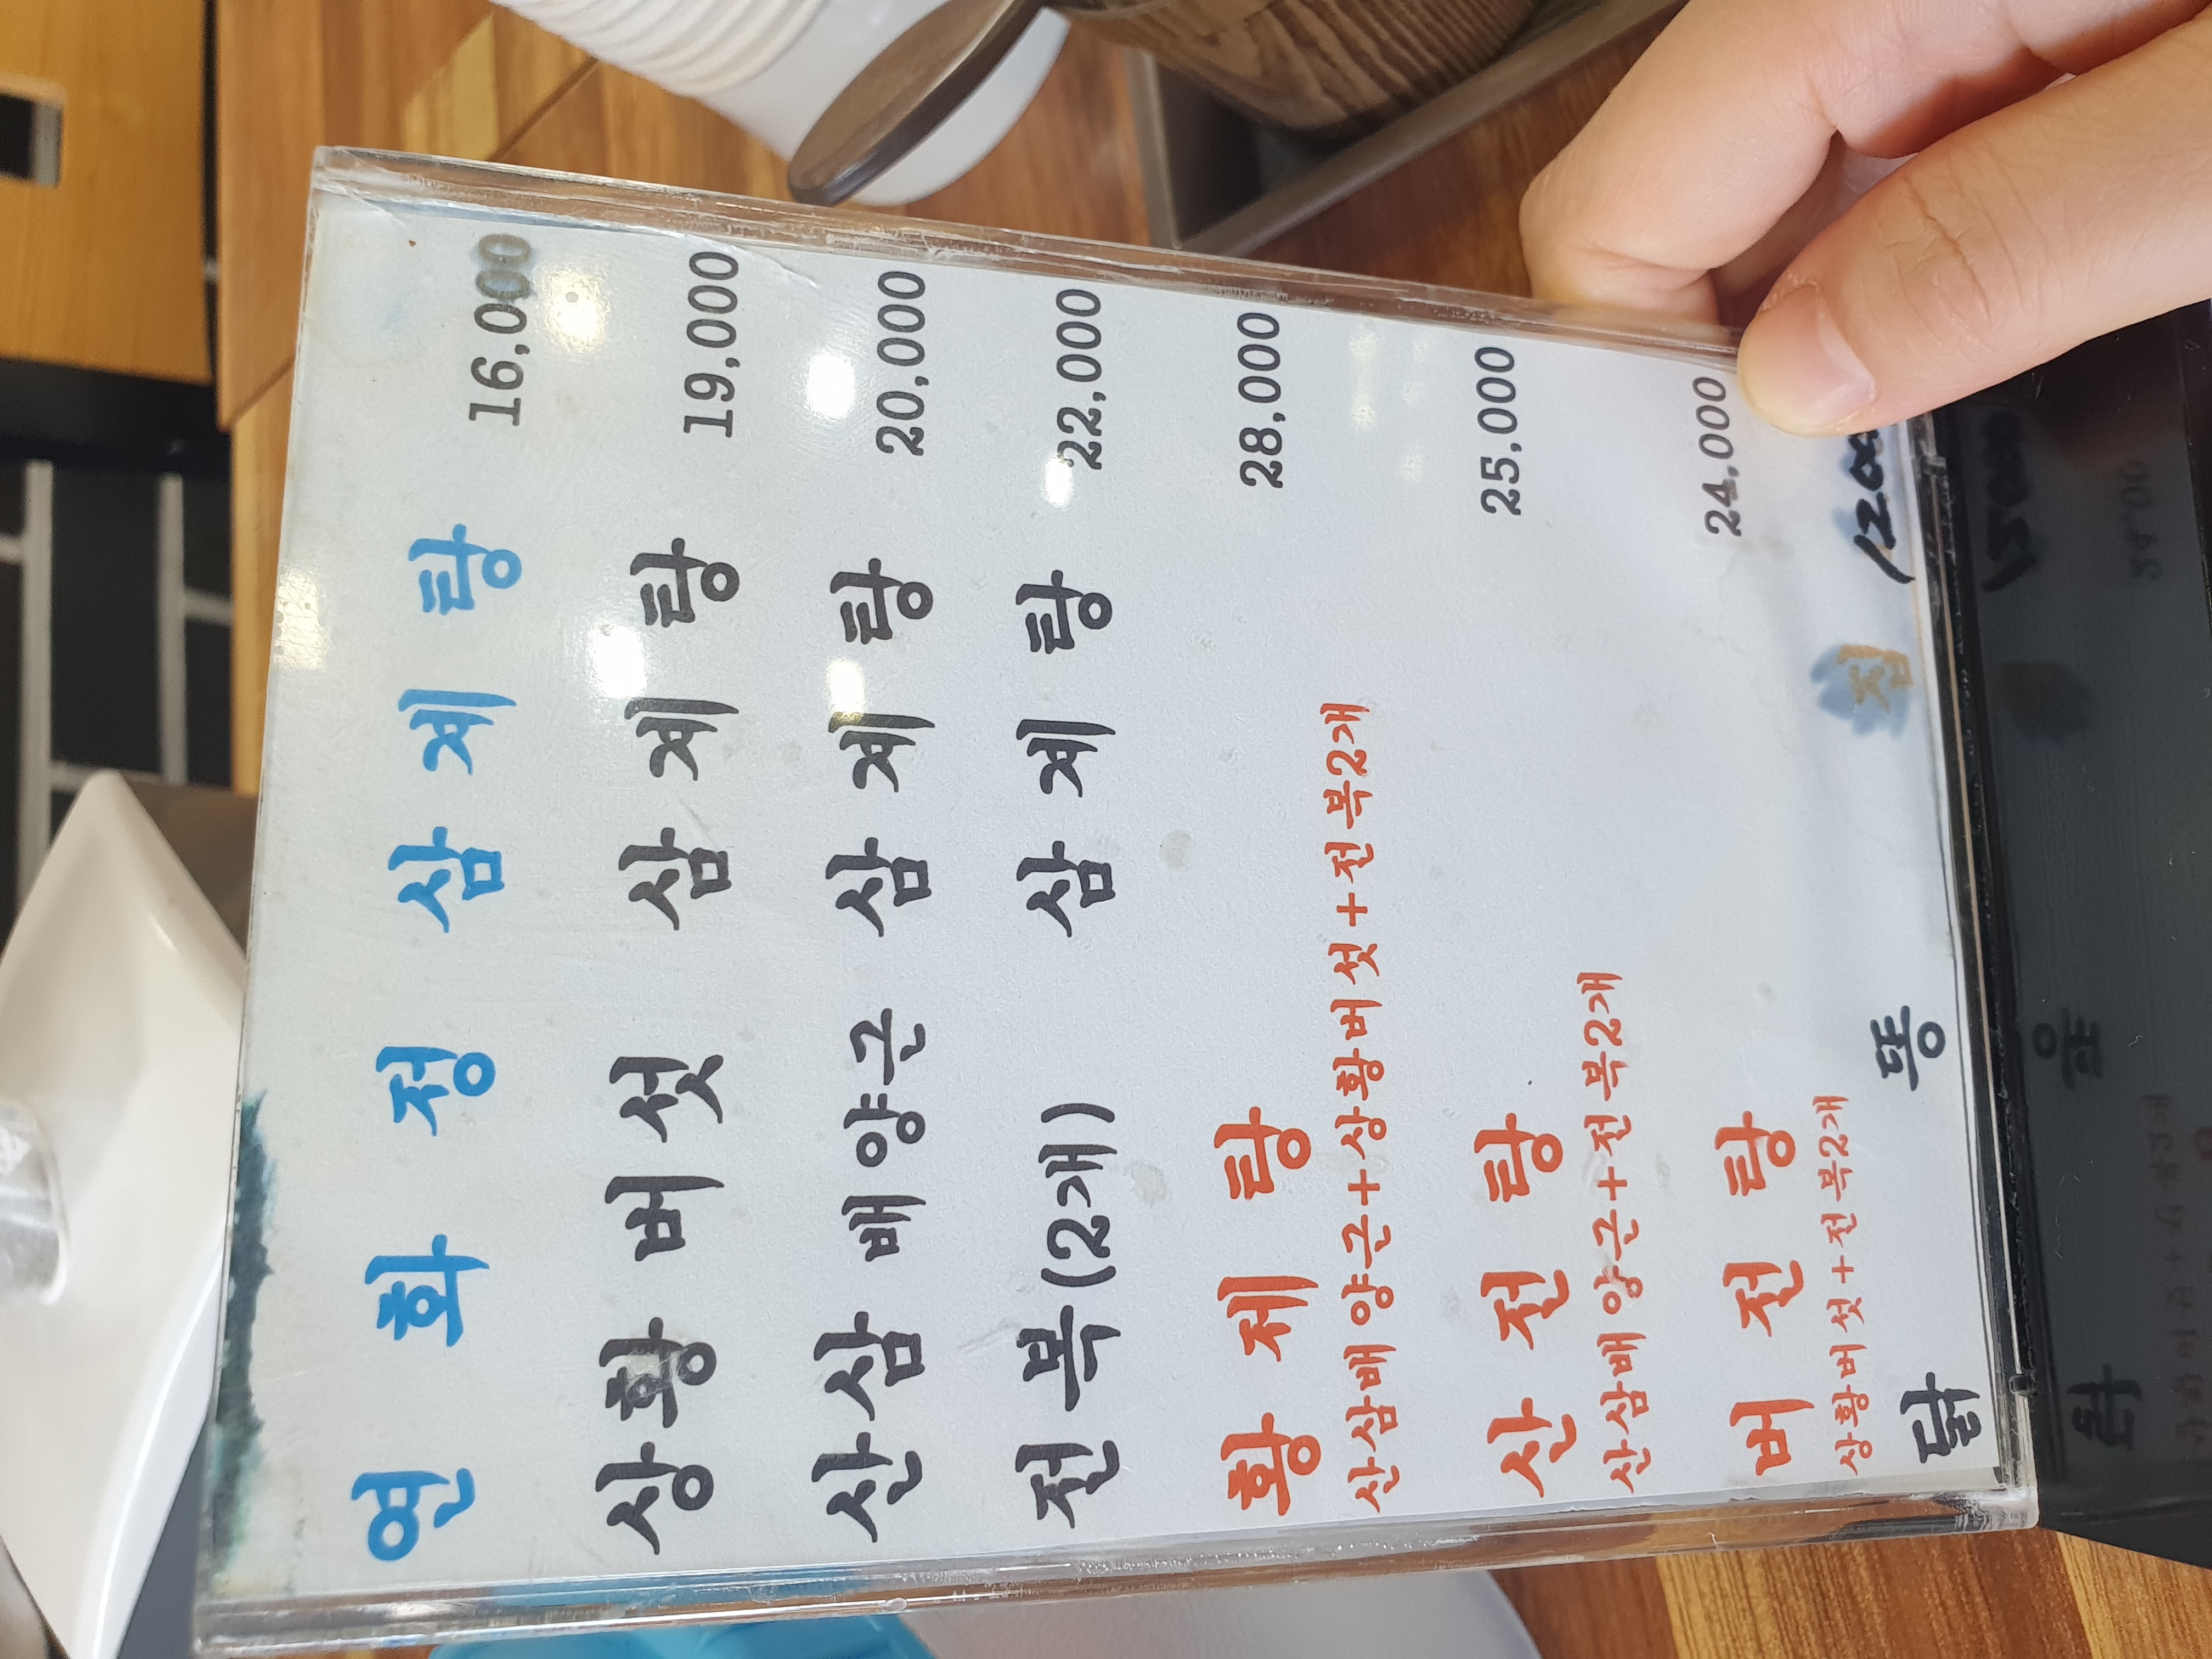 연화정 삼계탕 16,000
상황버섯 삼계탕 19,000
산삼배양근 삼계탕 20,000
전복(2개) 삼계탕 22,000
황제탕 28,000
산삼배양근+상황버섯+전복2개
산전탕 25,000
산삼배양근+전복2개
버전탕 24,000
상황버섯+전복2개
닭똥집